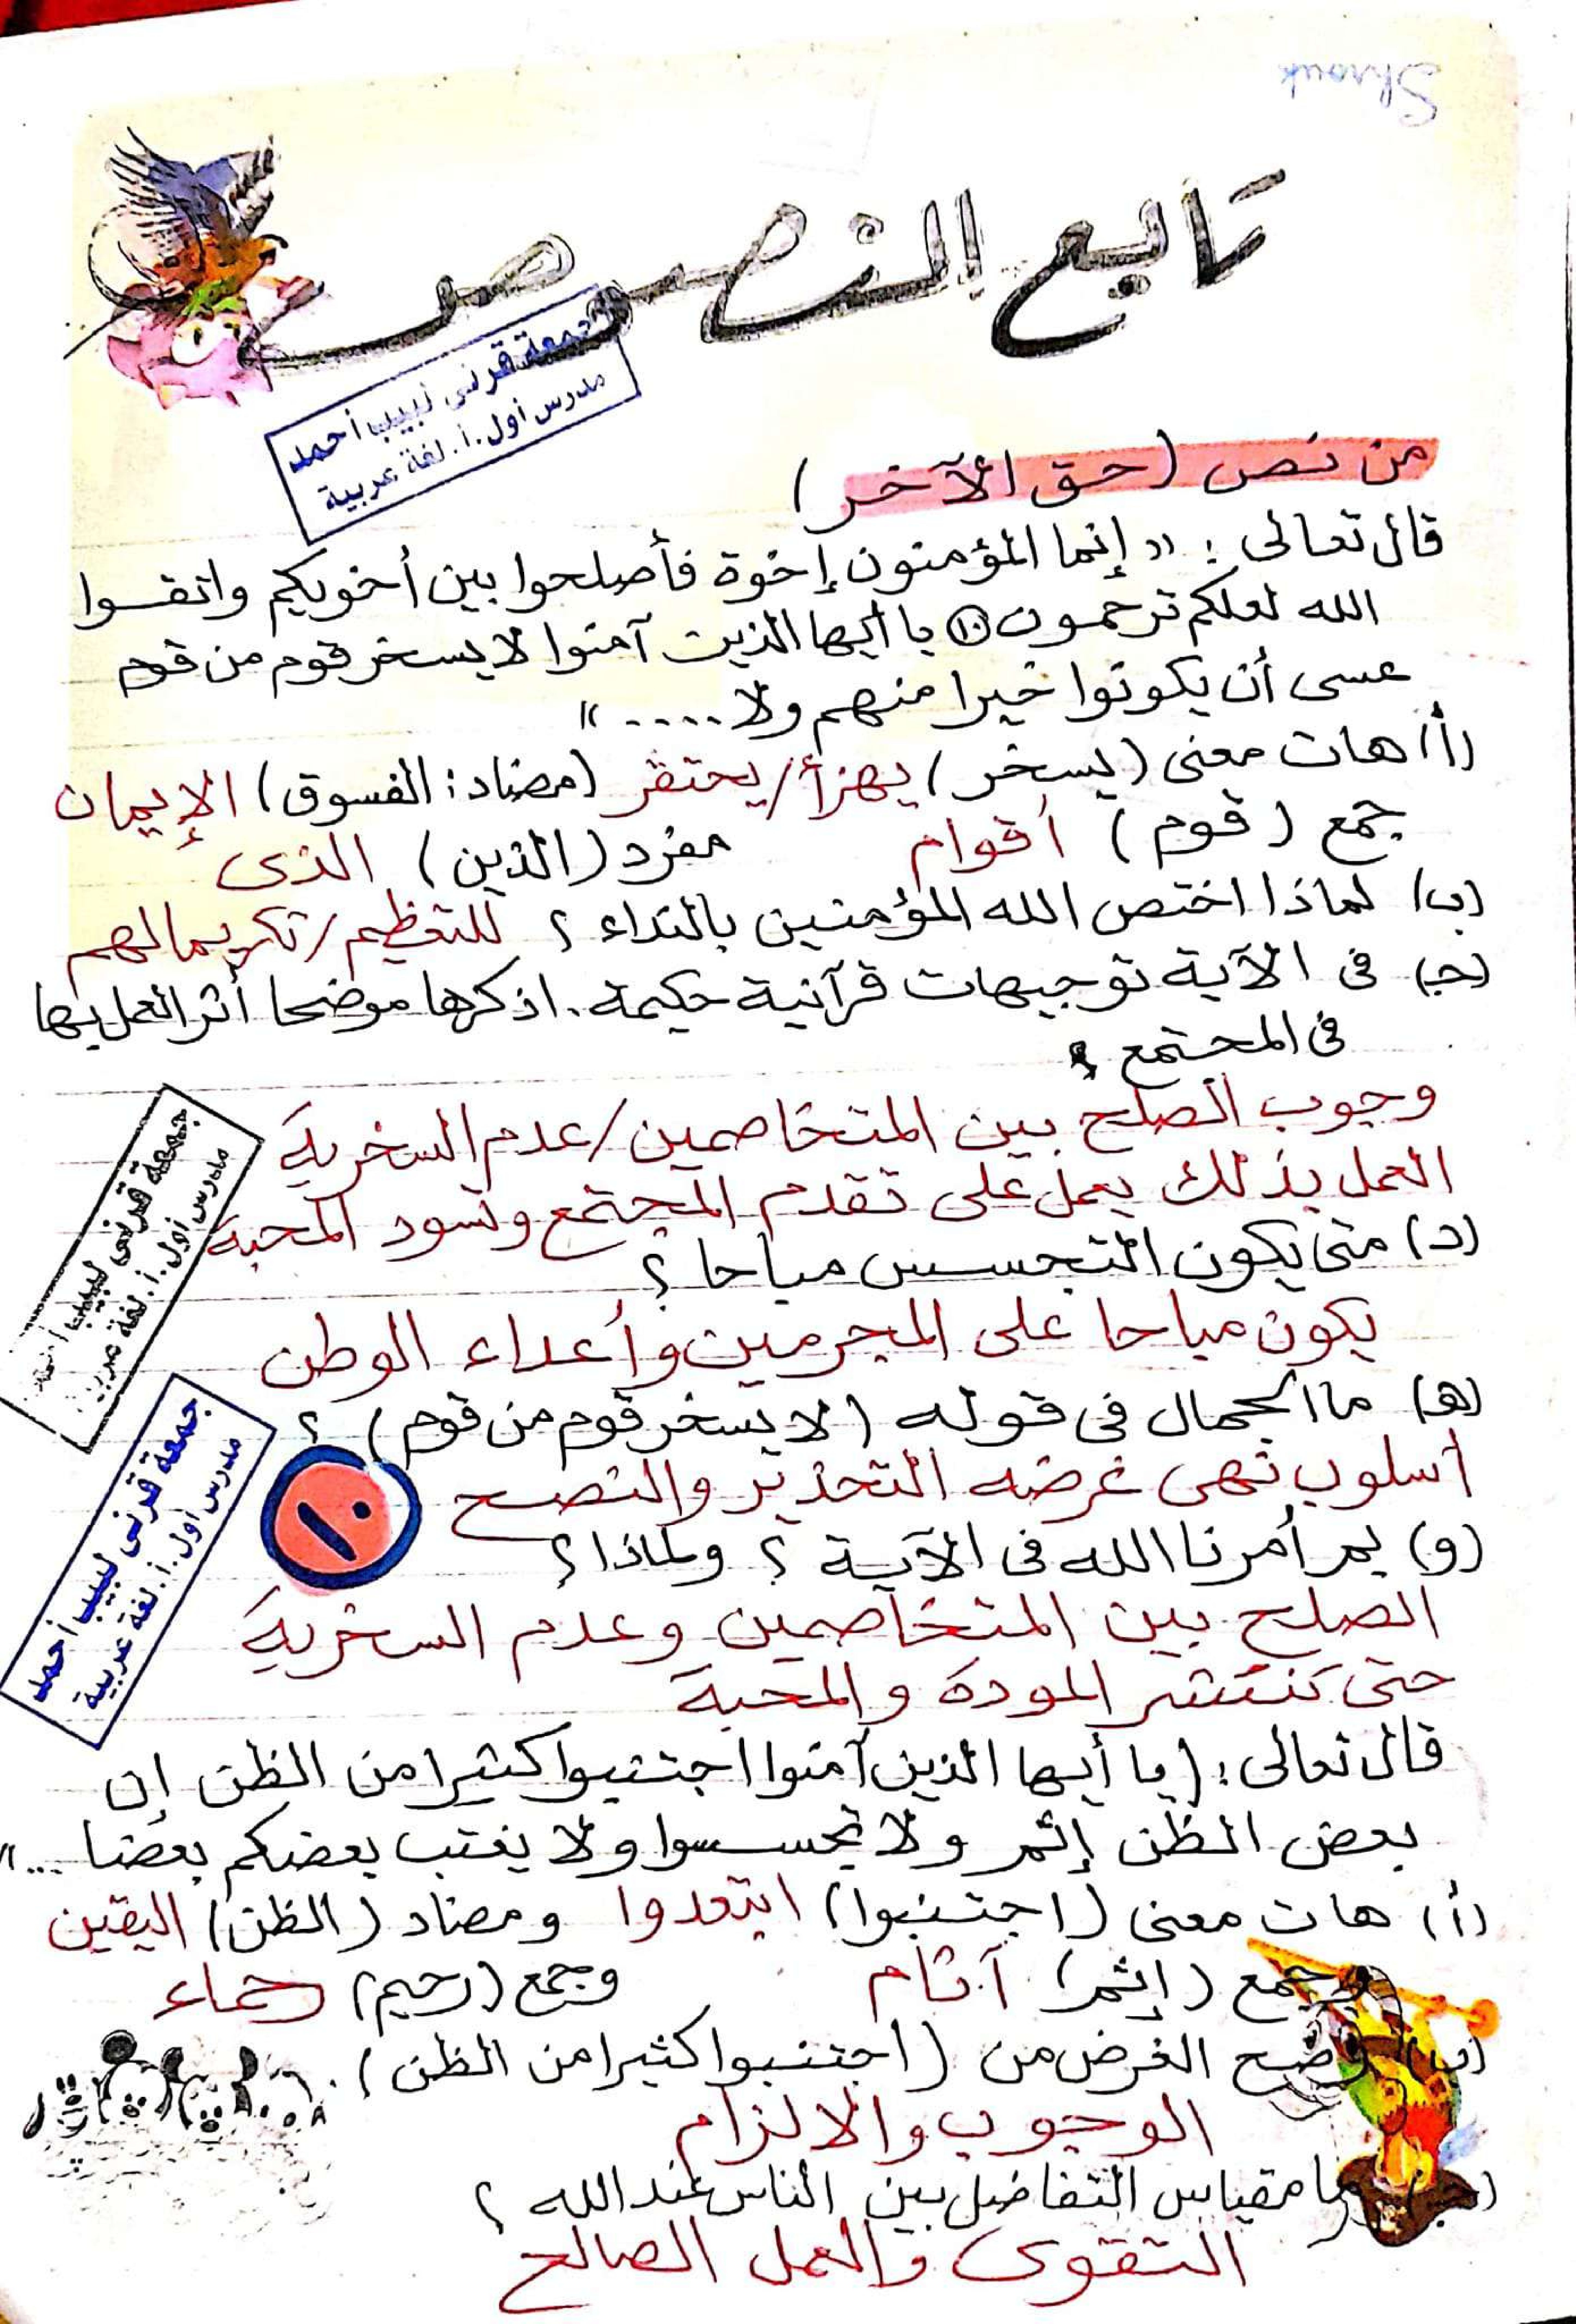 Shrouk
تابع النصوص
جمعة قرنى لبيب أحمد
مدرس أول.أ.لغة عربية
من نص (حق الآخر)
قال تعالى : « إنما المؤمنون إخوة فأصلحوا بين أخويكم واتقوا
الله لعلكم ترحمون (١٠) يا أيها الذين آمنوا لا يسخر قوم من قوم
عسى أن يكونوا خيرا منهم ولا .... »
(أ) هات معنى (يسخر) يهزأ/يحتقر (مضاد: الفسوق) الإيمان
جمع (قوم) أقوام مفرد (الذين) الذى
(ب) لماذا اختص الله المؤمنين بالنداء ؟ للتعظيم/تكريما لهم
(جـ) فى الآية توجيهات قرآنية حكيمة. اذكرها موضحا أثر العمل بها
فى المجتمع ؟
وجوب الصلح بين المتخاصمين/عدم السخرية
العمل بذلك يعمل على تقدم المجتمع وتسود المحبة
جمعة قرنى لبيب
مدرس أول.أ.لغة عربية
(د) متى يكون التجسس مباحا ؟
يكون مباحا على المجرمين وأعداء الوطن
(هـ) ما الجمال فى قوله (لا يسخر قوم من قوم) ؟
أسلوب نهى غرضه التحذير والنصح
١٠
جمعة قرنى لبيب أحمد
مدرس أول.أ.لغة عربية
(و) بم أمرنا الله فى الآية ؟ ولماذا ؟
الصلح بين المتخاصمين وعدم السخرية
حتى تنتشر المودة والمحبة
قال تعالى : (يا أيها الذين آمنوا اجتنبوا كثيرا من الظن إن
بعض الظن إثم ولا تجسسوا ولا يغتب بعضكم بعضا ... »
(أ) هات معنى (اجتنبوا) ابتعدوا ومضاد (الظن) اليقين
وجمع (إثم) آثام وجمع (رحيم) رحماء
(ب) وضح الغرض من (اجتنبوا كثيرا من الظن).
الوجوب والالزام
(جـ) ما مقياس التفاضل بين الناس عند الله ؟
التقوى والعمل الصالح